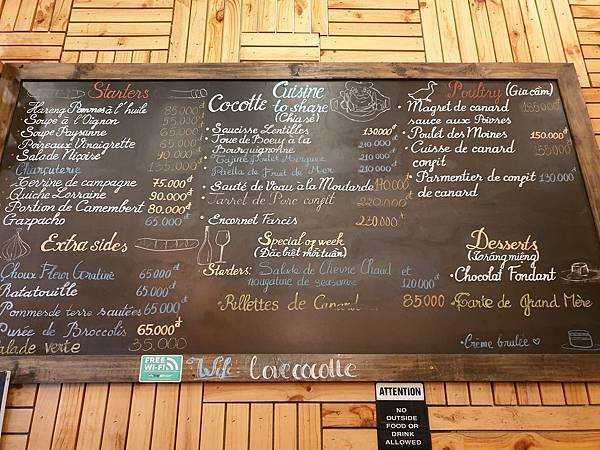 Starters
Hareng Pommes à l'huile 85000đ
Soupe à l'Oignon 55000
Soupe Paysanne 55000
Poireaux Vinaigrette 65000
Salade Niçoise 90.000
Charcuterie 155.000
Terrine de campagne 75.000
Quiche Lorraine 90.000
Portion de Camembert 80.000
Gazpacho 65.000
Extra sides
Choux Fleur Gratiné 65.000đ
Ratatouille 65.000
Pommes de terre sautées 65000
Purée de Broccolis 65.000đ
Salade verte 35.000
Cocotte
Cuisine
to share
(Chia sẻ)
Saucisse Lentilles 130000đ
Joue de Boeuf à la
Bourguignonne 210.000
Tajine Poulet Merguez 210.000
Paella de Fruit de Mer 210.000
Sauté de Veau à la Moutarde 190000
Jarret de Porc confit 220.000
Encornet Farcis 230.000
Special of week
(Đặc biệt mỗi tuần)
Starters: Salade de Chèvre Chaud et 120000đ
nougatine de sesame
Rillettes de Canard 85000
Poultry (Gia cầm)
Magret de canard 185.000đ
sauce aux Poivres
Poulet des Moines 150.000đ
Cuisse de canard 155000
confit
Parmentier de confit 130.000
de canard
Desserts
(Tráng miệng)
Chocolat Fondant
Tarte de Grand Mère
Crème brulée
FREE
WI-FI
Wifi: lovecocotte
ATTENTION
NO
OUTSIDE
FOOD OR
DRINK
ALLOWED